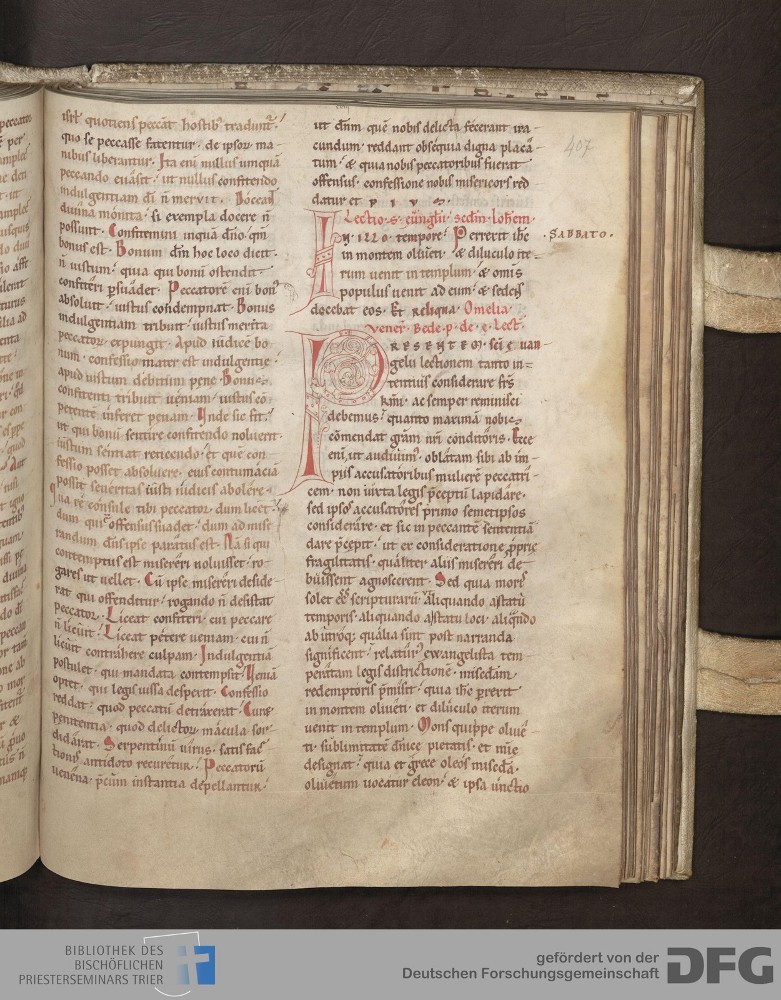 isrl' quotiens peccāt hostib; tradunt̄.
quo se peccasse fatentur. de ipsor ma-
nibus liberantur. Ita eni nullus umquā
peccando euasit. ut nullus confitendo
indulgentiam dī n̄ meruit. Doceant
diuina monita. si exempla docere n̄
possunt. Confitemini inquā dn̄o. qm̄
bonus est. Bonum dn̄m hoc loco dicit.
n̄ iustum. quia qui bonū ostendit
confiteri p̄suadet. Peccatorē eni bon;
absoluit. iustus condempnat. Bonus
indulgentiam tribuit. iustus merita
peccator expungit. Apud iudicē bo
num. confessio mater est indulgentie.
apud iustum debitum pene. Bonus
confitenti tribuit ueniam. iustus cō
petente inferet penam. Unde sic fit.
ut qui bonū sentire confitendo noluerit.
iustum sentiat reticendo. et que con-
fessio posset absoluere. eius contumacia
possit seueritas iusti iudicis abolere.
qua re consule tibi peccator. dum licet.
dum qui offensus suadet. dum ad mise
randum dn̄s ipse paratus est. Nā si qui
contemptus est misereri noluisset. ro-
gares ut uellet. Cū ipse misereri deside-
rat qui offenditur. rogando n̄ desistat
peccator. Liceat confiteri. cui peccare
n̄ licuit. Liceat petere ueniam. cui n̄
licuit contrahere culpam. Indulgentiā
postulet. qui mandata contempsit. Ueniā
optet. qui legis iussa desperit. Confessio
reddat. quod peccatū detraxerat. Curet
penitentia. quod delictor macula sor-
didarit. Serpentinū uirus. satisfac̄
tionis antidoto recuretur. Peccatorū
uenena. p̄cum instantia depellantur.
ut dn̄m quē nobis delicta fecerant ira-
cundum. reddant obsequia digna placa-
tum. & quia nobis peccatoribus fuerat
offensus. confessione nobis misericors red
datur et p i u s.
Lectio s. euuglii. sedm̄ Ioh̄em.
In illo. tempore. Perrexit ih̄c
in montem oliueti. & diluculo ite-
rum uenit in templum. & omīs
populus uenit ad eum. & sedens
docebat eos. Et reliqua. Omelia
uener. Bede. p. de. ę. lect.
Presentem. sci ę uan-
gelii lectionem tanto in-
tentius considerare frs̄
karīi. ac semper reminisci
debemus. quanto maximā nobis
cōmendat grām nr̄i conditoris. Ecce
eni. ut audiuim;. oblatam sibi ab im-
piis accusatoribus mulierē peccatri-
cem. non iuxta legis p̄ceptū lapidare.
sed ipsos accusatores primo semetipsos
considerare. et sic in peccantē sententiā
dare p̄cepit. ut ex consideratione p̄prię
fragilitatis. qualiter aliis misereri de-
buissent agnoscerent. Sed quia moris
solet scripturarū. aliquando astatū
temporis. aliquando astatu loci. aliqn̄do
ab utroq; qualia sint post narranda
significent. relatur; ewangelista tem-
peratam legis districtione. misedam
redemptoris. p̄misit. quia ih̄c perrexit
in montem oliueti. et diluculo iterum
uenit in templum. Mons quippe oliue-
ti. sublimitatē dn̄ice pietatis. et mīe
designat. quia et grece oleos misedā.
oliuetum uocatur eleon. & ipsa unctio
SABBATO.
407
BIBLIOTHEK DES
BISCHÖFLICHEN
PRIESTERSEMINARS TRIER
gefördert von der
Deutschen Forschungsgemeinschaft
DFG